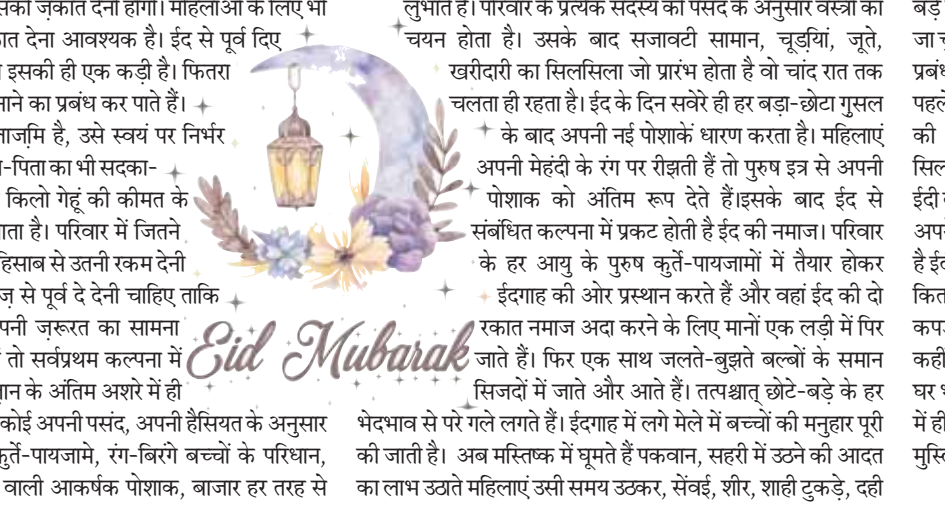 देना होगी। महिलाओं के लिए भी
देना आवश्यक है। ईद से पूर्व दिए
इसकी ही एक कड़ी है। फितरा
का प्रबंध कर पाते हैं।
है, उसे स्वयं पर निर्भर
का भी सदका-
किलो गेहूं की कीमत के
है। परिवार में जितने
हिसाब से उतनी रकम देनी
से पूर्व दे देनी चाहिए ताकि
ज़रूरत का सामना
तो सर्वप्रथम कल्पना में
के अंतिम अशरे में ही
कोई अपनी पसंद, अपनी हैसियत के अनुसार
कुर्ते-पायजामे, रंग-बिरंगे बच्चों के परिधान,
वाली आकर्षक पोशाक, बाजार हर तरह से
Eid Mubarak
लुभाते हैं। परिवार के प्रत्येक सदस्य की पसंद के अनुसार वस्त्रों का
चयन होता है। उसके बाद सजावटी सामान, चूड़यिां, जूते,
खरीदारी का सिलसिला जो प्रारंभ होता है वो चांद रात तक
चलता ही रहता है। ईद के दिन सवेरे ही हर बड़ा-छोटा गुसल
के बाद अपनी नई पोशाकें धारण करता है। महिलाएं
अपनी मेहंदी के रंग पर रीझती हैं तो पुरुष इत्र से अपनी
पोशाक को अंतिम रूप देते हैं।इसके बाद ईद से
संबंधित कल्पना में प्रकट होती है ईद की नमाज। परिवार
के हर आयु के पुरुष कुर्ते-पायजामों में तैयार होकर
ईदगाह की ओर प्रस्थान करते हैं और वहां ईद की दो
रकात नमाज अदा करने के लिए मानों एक लड़ी में पिर
जाते हैं। फिर एक साथ जलते-बुझते बल्बों के समान
सिजदों में जाते और आते हैं। तत्पश्चात् छोटे-बड़े के हर
भेदभाव से परे गले लगते हैं। ईदगाह में लगे मेले में बच्चों की मनुहार पूरी
की जाती है। अब मस्तिष्क में घूमते हैं पकवान, सहरी में उठने की आदत
का लाभ उठाते महिलाएं उसी समय उठकर, सेंवई, शीर, शाही टुकड़े, दही
बड़े
जा
पहले
की
ईदी
है
घर
में ही